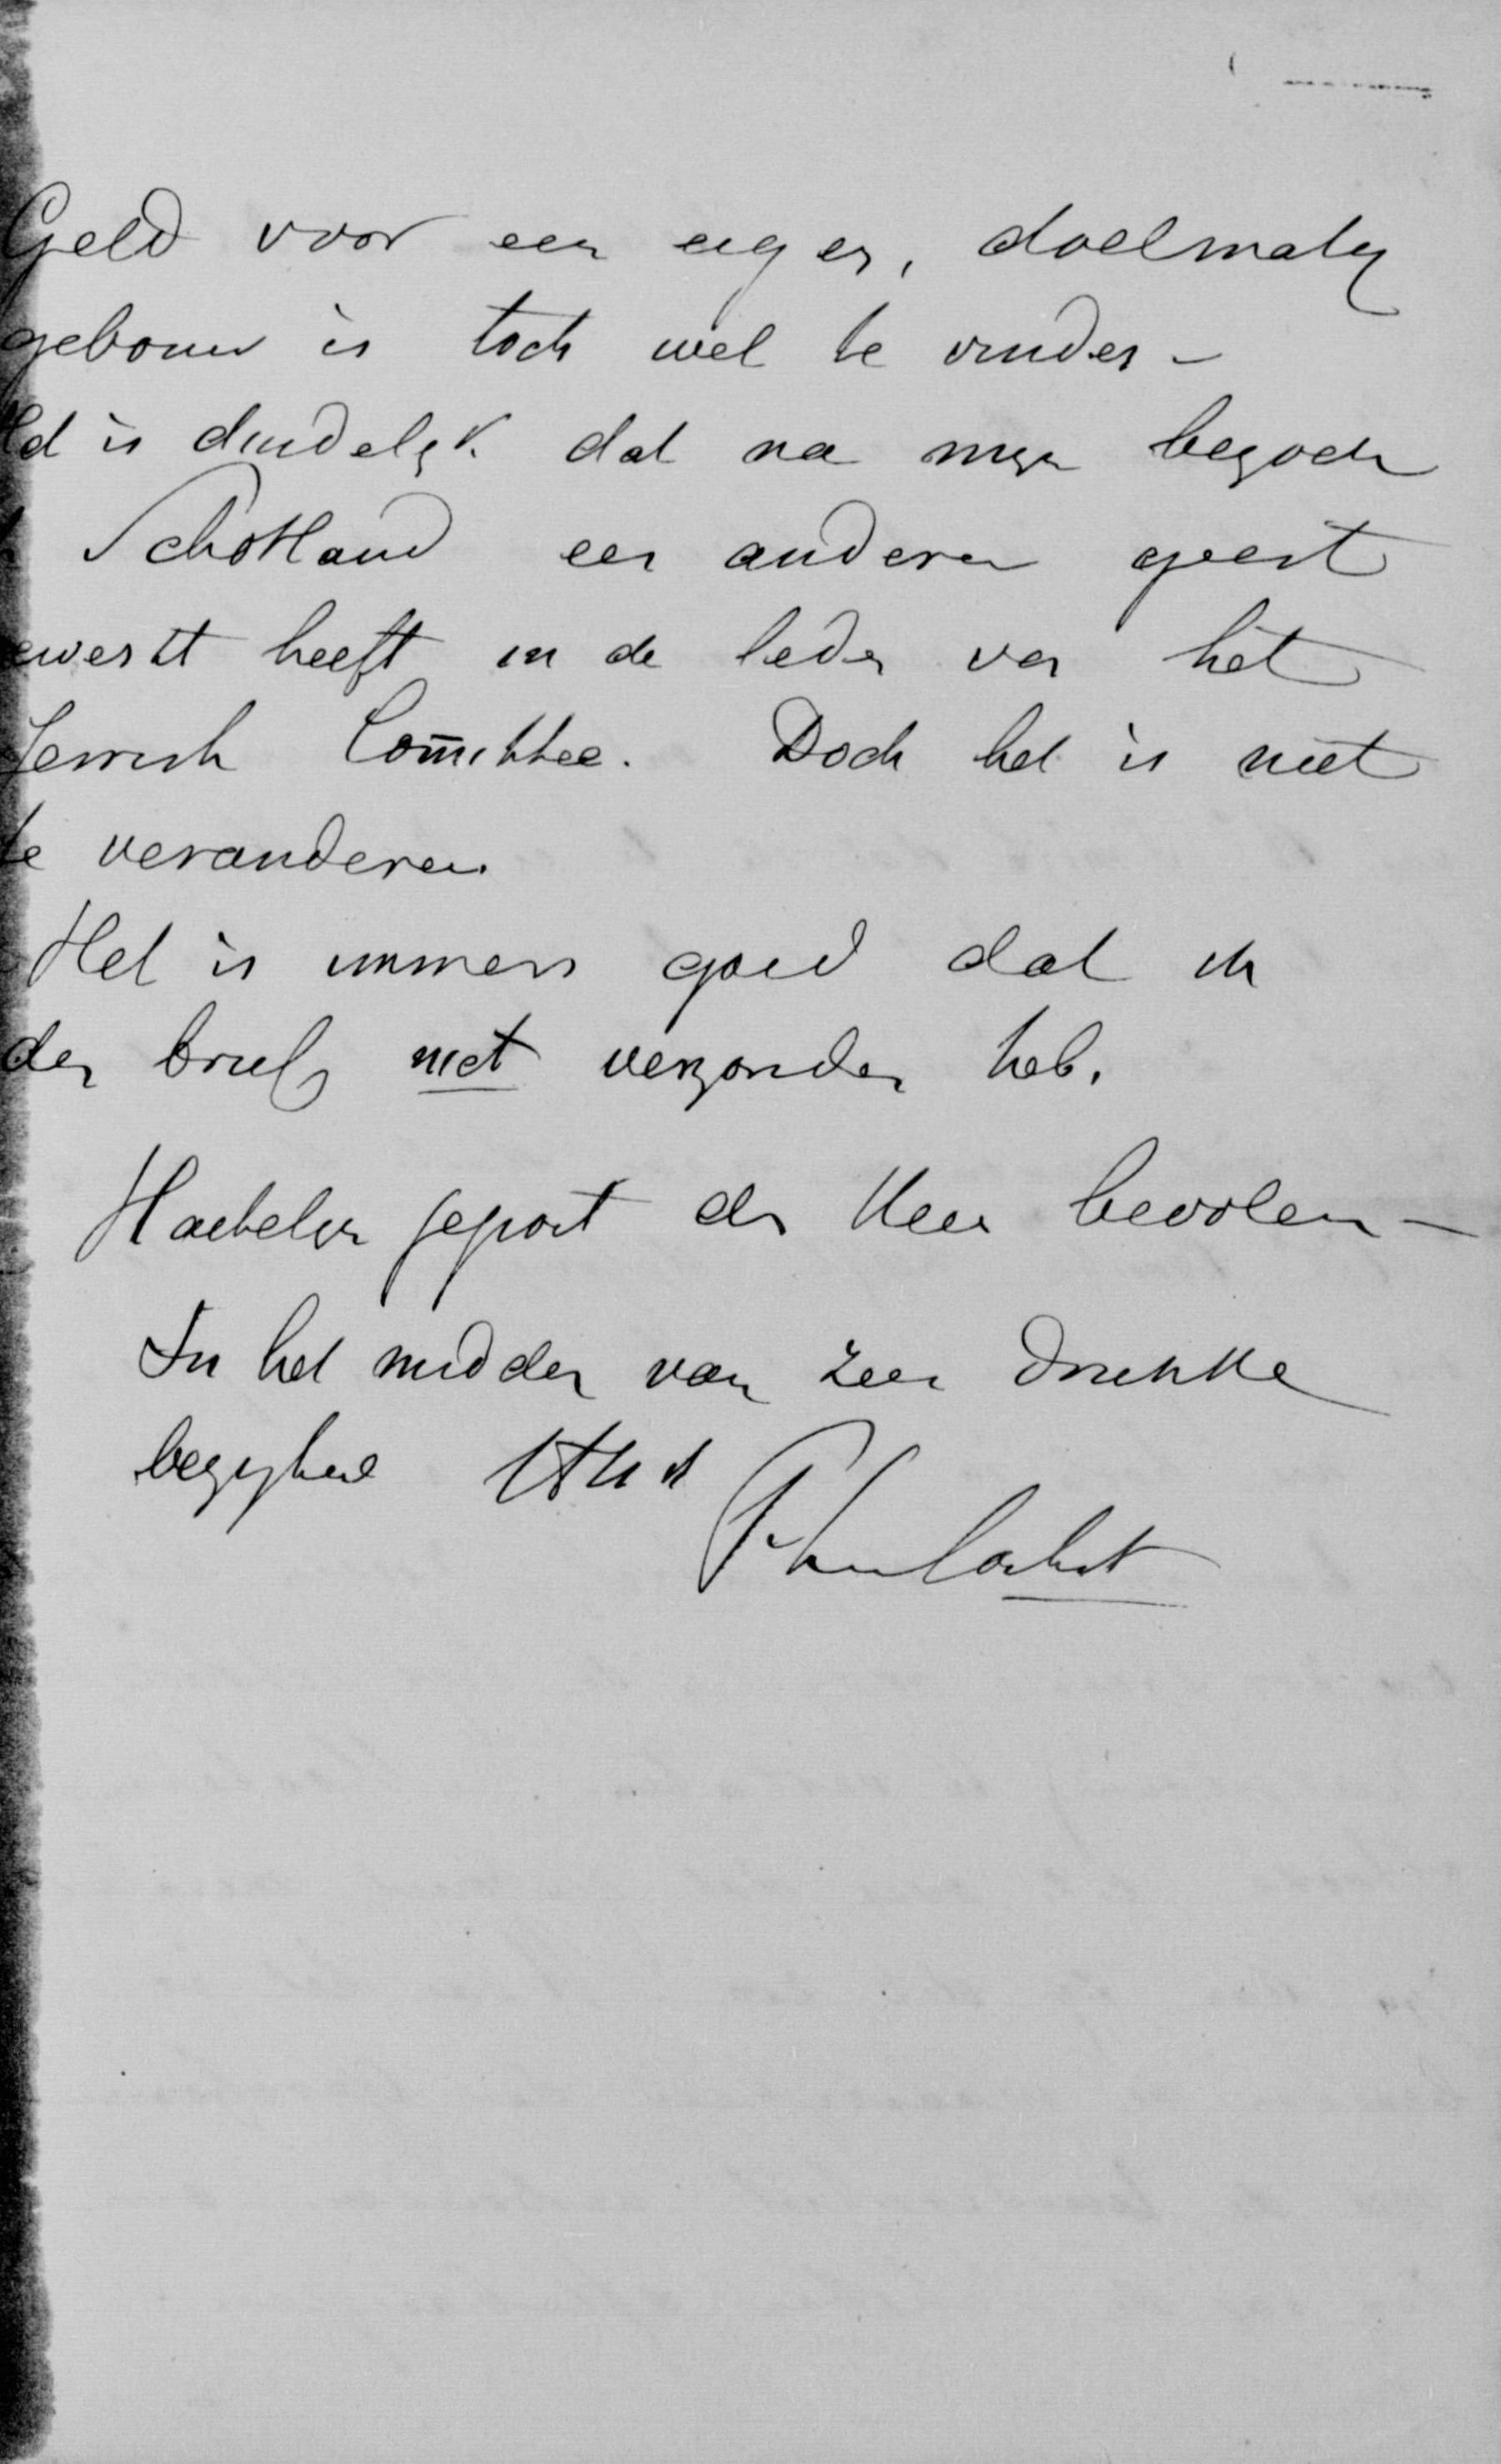 Geld voor een eigen, doelmatig
gebouw is toch wel te vinden –
Het is duidelijk dat na mijn bezoek
Schotland een anderen geest
gewerkt heeft in de leden van het
Jewish Com̄ittee. Doch het is niet
te veranderen
Het is immers goed dat ik
den brief niet verzonden heb.
Hartelijk gegroet den Heer bevolen –
In het midden van zeer drukke
bezigheid